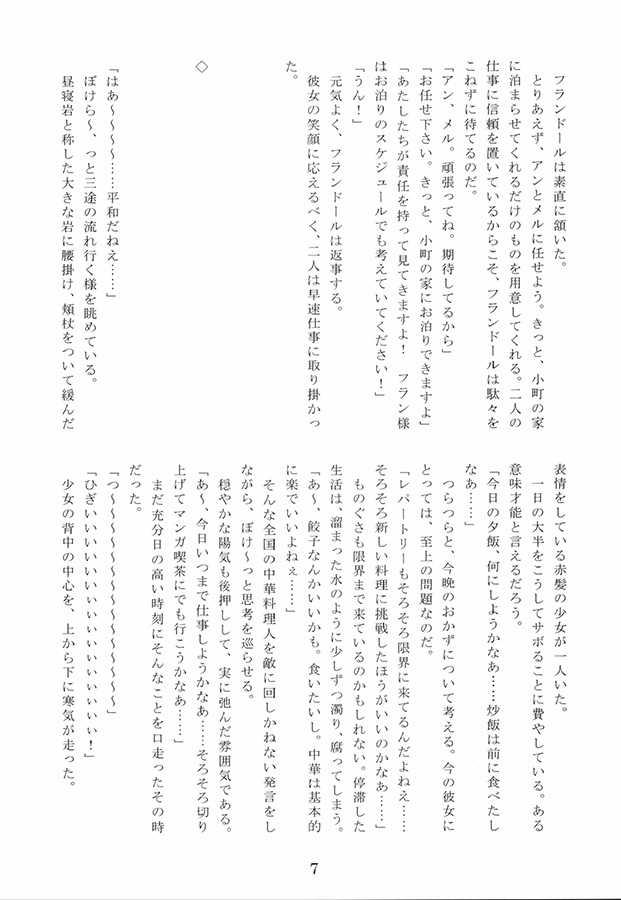 フランドールは素直に頷いた。
とりあえず、アンとメルに任せよう。きっと、小町の家
に泊まらせてくれるだけのものを用意してくれる。二人の
仕事に信頼を置いているからこそ、フランドールは駄々を
こねずに待てるのだ。
「アン、メル。頑張ってね。期待してるから」
「お任せ下さい。きっと、小町の家にお泊りできますよ」
「あたしたちが責任を持って見てきますよ！　フラン様
はお泊りのスケジュールでも考えていてください！」
「うん！」
元気よく、フランドールは返事する。
彼女の笑顔に応えるべく、二人は早速仕事に取り掛かっ
た。
◇
「はあ～～～～……平和だねえ……」
ぼけら～、っと三途の流れ行く様を眺めている。
昼寝岩と称した大きな岩に腰掛け、頬杖をついて緩んだ
表情をしている赤髪の少女が一人いた。
一日の大半をこうしてサボることに費やしている。ある
意味才能と言えるだろう。
「今日の夕飯、何にしようかなあ……炒飯は前に食べたし
なあ……」
つらつらと、今晩のおかずについて考える。今の彼女に
とっては、至上の問題なのだ。
「レパートリーもそろそろ限界に来てるんだよねえ……
そろそろ新しい料理に挑戦したほうがいいのかなあ……」
ものぐさも限界まで来ているのかもしれない。停滞した
生活は、溜まった水のように少しずつ濁り、腐ってしまう。
「あ～、餃子なんかいいかも。食いたいし。中華は基本的
に楽でいいよねぇ……」
そんな全国の中華料理人を敵に回しかねない発言をし
ながら、ぼけ～っと思考を巡らせる。
穏やかな陽気も後押しして、実に弛んだ雰囲気である。
「あ～、今日いつまで仕事しようかなあ……そろそろ切り
上げてマンガ喫茶にでも行こうかなあ……」
まだ充分日の高い時刻にそんなことを口走ったその時
だった。
「つ～～～～～～～～～～～～～」
「ひぎいいいいいいいぃぃぃぃぃぃぃぃぃ！」
少女の背中の中心を、上から下に寒気が走った。
7